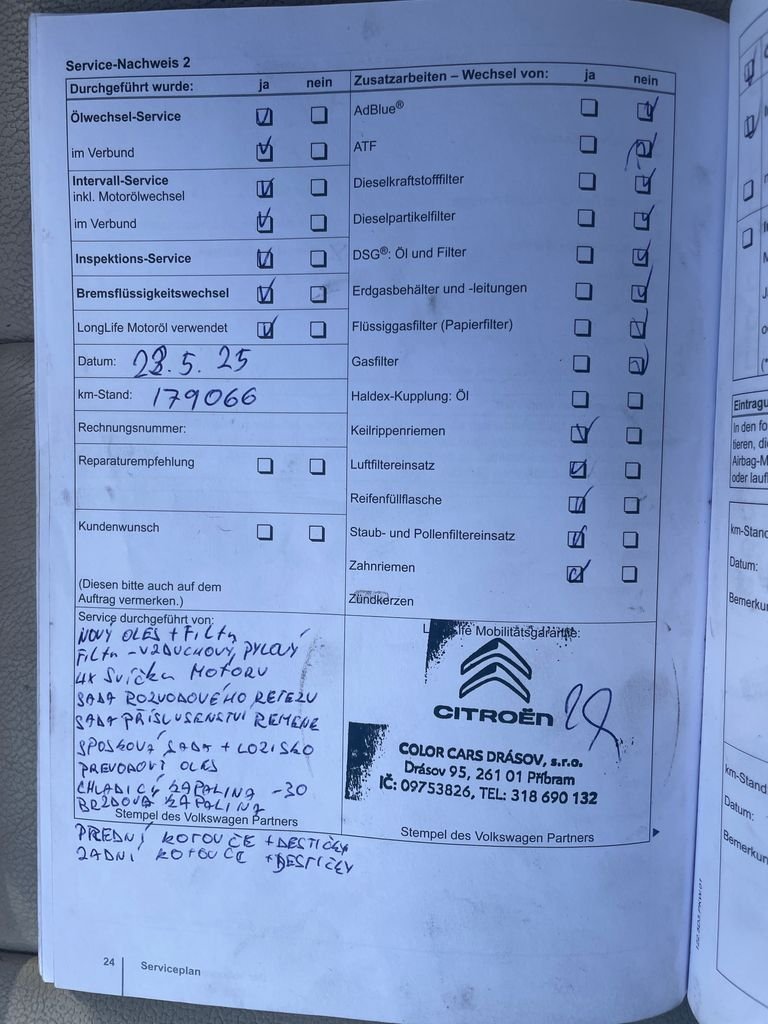 Service-Nachweis 2
Durchgeführt wurde: ja nein
Ölwechsel-Service
im Verbund
Intervall-Service
inkl. Motorölwechsel
im Verbund
Inspektions-Service
Bremsflüssigkeitswechsel
LongLife Motoröl verwendet
Datum: 28.5.25
km-Stand: 179066
Rechnungsnummer:
Reparaturempfehlung
Kundenwunsch
(Diesen bitte auch auf dem
Auftrag vermerken.)
Service durchgeführt von:
NOVÝ OLEJ + FILTR
FILTR - VZDUCHOVÝ, PYLOVÝ
4x SVÍČKA MOTORU
SADA ROZVODOVÉHO ŘETEZU
SADA PŘÍSLUSENSTVÍ REMENE
SPOJKOVÁ SADA + LOZISKO
PREVODOVÝ OLEJ
CHLADÍCÍ KAPALINA -30
BRZDOVÁ KAPALINA
Stempel des Volkswagen Partners
PŘEDNÍ KOTOUČE + DESTIČKY
ZADNÍ KOTOUČE + DESTIČKY
Zusatzarbeiten – Wechsel von: ja nein
AdBlue®
ATF
Dieselkraftstofffilter
Dieselpartikelfilter
DSG®: Öl und Filter
Erdgasbehälter und -leitungen
Flüssiggasfilter (Papierfilter)
Gasfilter
Haldex-Kupplung: Öl
Keilrippenriemen
Luftfiltereinsatz
Reifenfüllflasche
Staub- und Pollenfiltereinsatz
Zahnriemen
Zündkerzen
Mobilitätsgarantie:
CITROËN
COLOR CARS DRÁSOV, s.r.o.
Drásov 95, 261 01 Příbram
IČ: 09753826, TEL: 318 690 132
Stempel des Volkswagen Partners
24 Serviceplan
Eintragu
In den fo
tieren, di
Airbag-M
oder lauf
km-Stand
Datum:
Bemerku
km-Stand
Datum:
Bemerkun